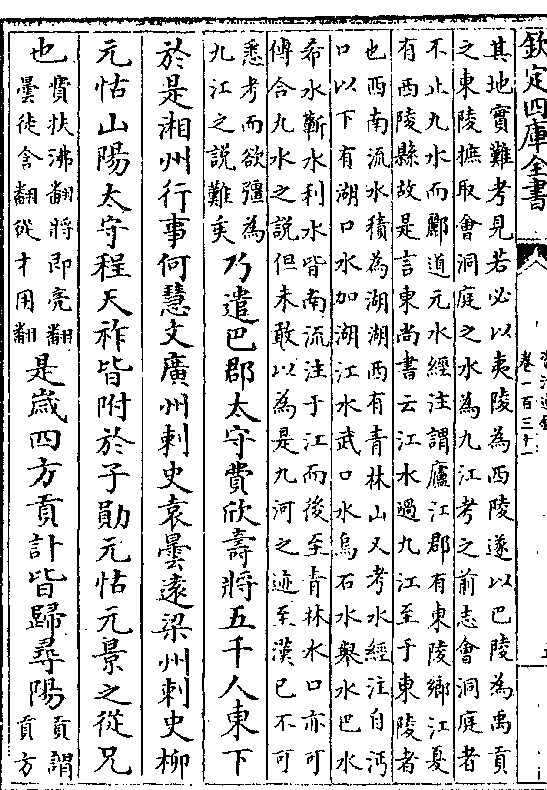 欽定四庫全書
卷一百三十一
其地實難考見若必以夷陵為西陵遂以巴陵為禹貢
之東陵摭取會洞庭之水為九江考之前志會洞庭者
不止九水而酈道元水經注謂廬江郡有東陵鄉江夏
有西陵縣故是言東尚書云江水過九江至于東陵者
也西南流水積為湖湖西有青林山又考水經注自沔
口以下有湖口水加湖江水武口水烏石水舉水巴水
希水蘄水利水皆南流注于江而後至青林水口亦可
傅合九水之說但未敢以為是九河之迹至漢已不可
悉考而欲彊為
九江之說難矣
乃遣巴郡太守費欣壽將五千人東下
於是湘州行事何慧文廣州刺史袁曇遠梁州刺史柳
元怙山陽太守程天祚皆附於子勛元怙元景之從兄
也
費扶沸翻將即亮翻
曇徒含翻從才用翻
是歲四方貢計皆歸尋陽
貢謂
貢方